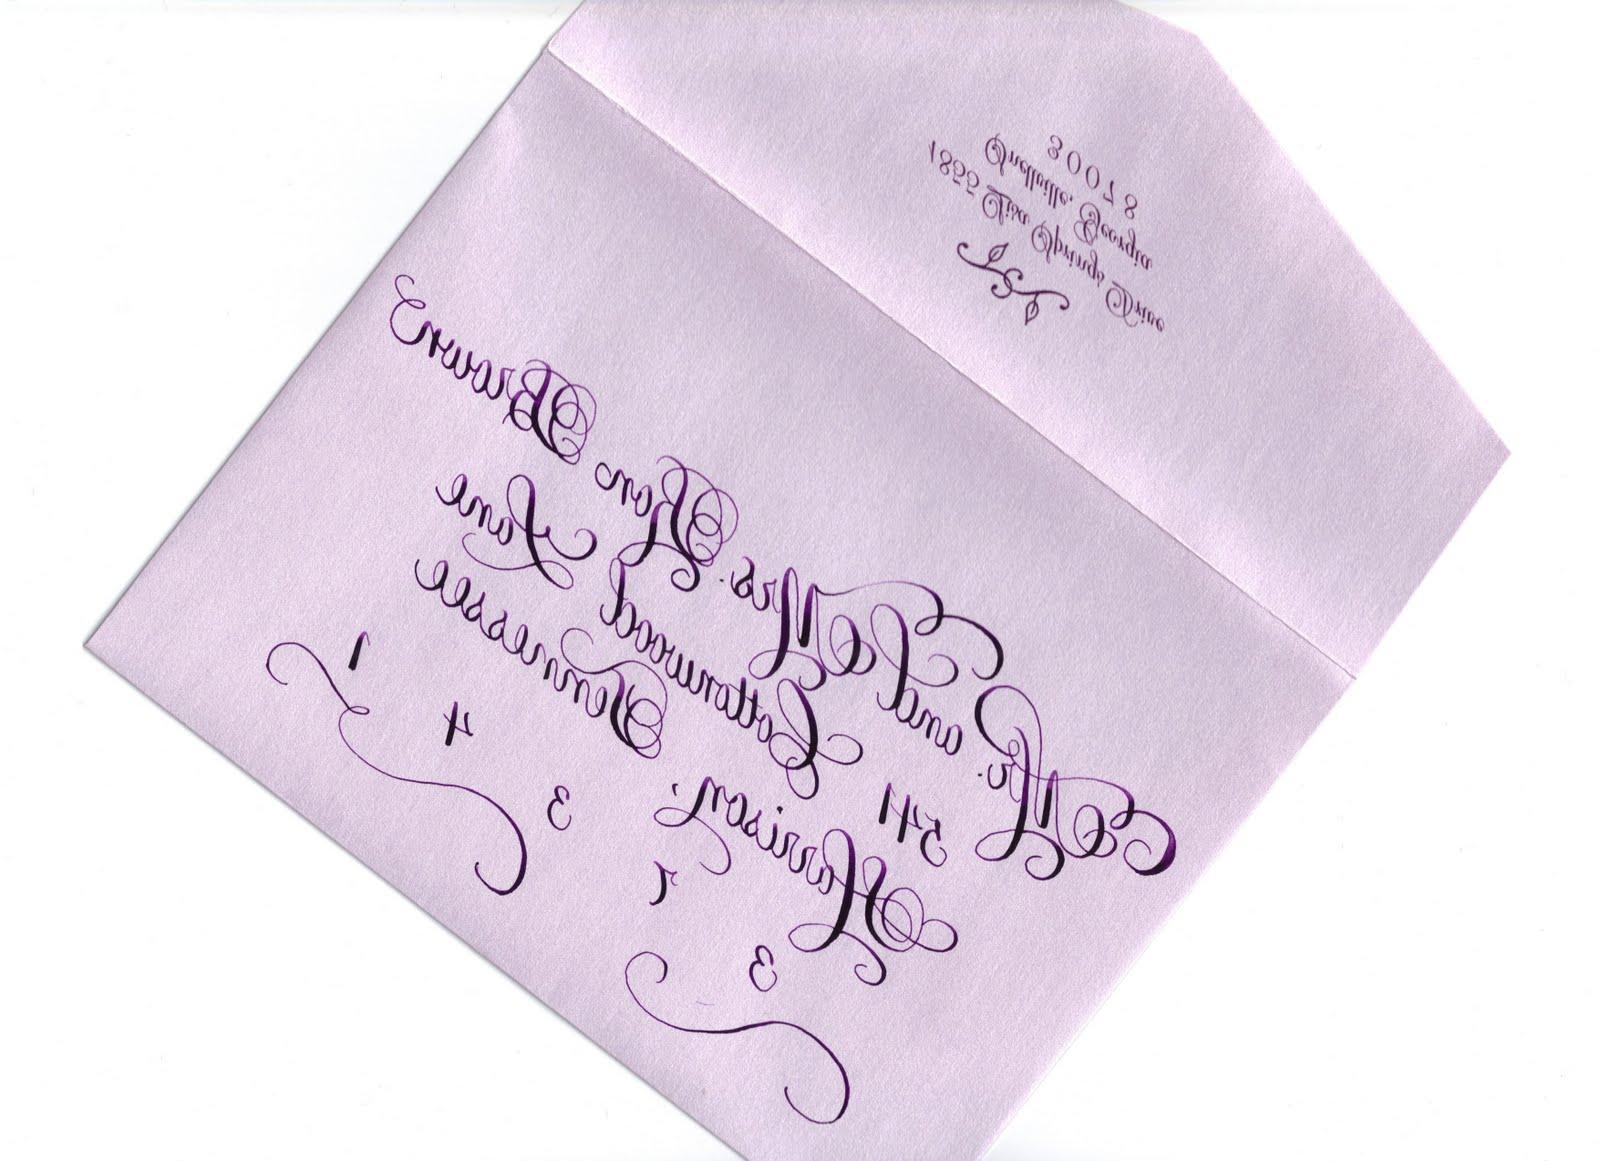 1855 Lisa Springs Drive
Snellville, Georgia
30078
Mr. and Mrs. Ron Brown
541 Cottonwood Lane
Harrison, Tennessee
3 7 3 4 1